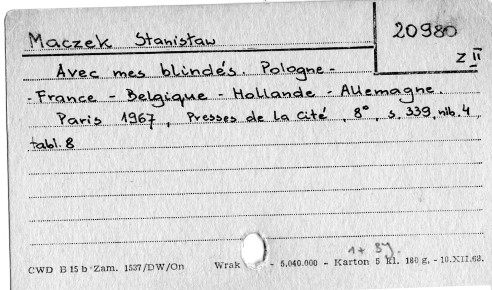 Maczek Stanisław
20980
Z II
Avec mes blindés. Pologne -
- France - Belgique - Hollande - Allemagne.
Paris 1967, Presses de la Cité, 8°, s. 339, nlb. 4,
tabl. 8
1+
CWD B 15 b Zam. 1537/DW/On Wrak - 5.040.000 - Karton 5 kl. 180 g. - 10.XII.68.